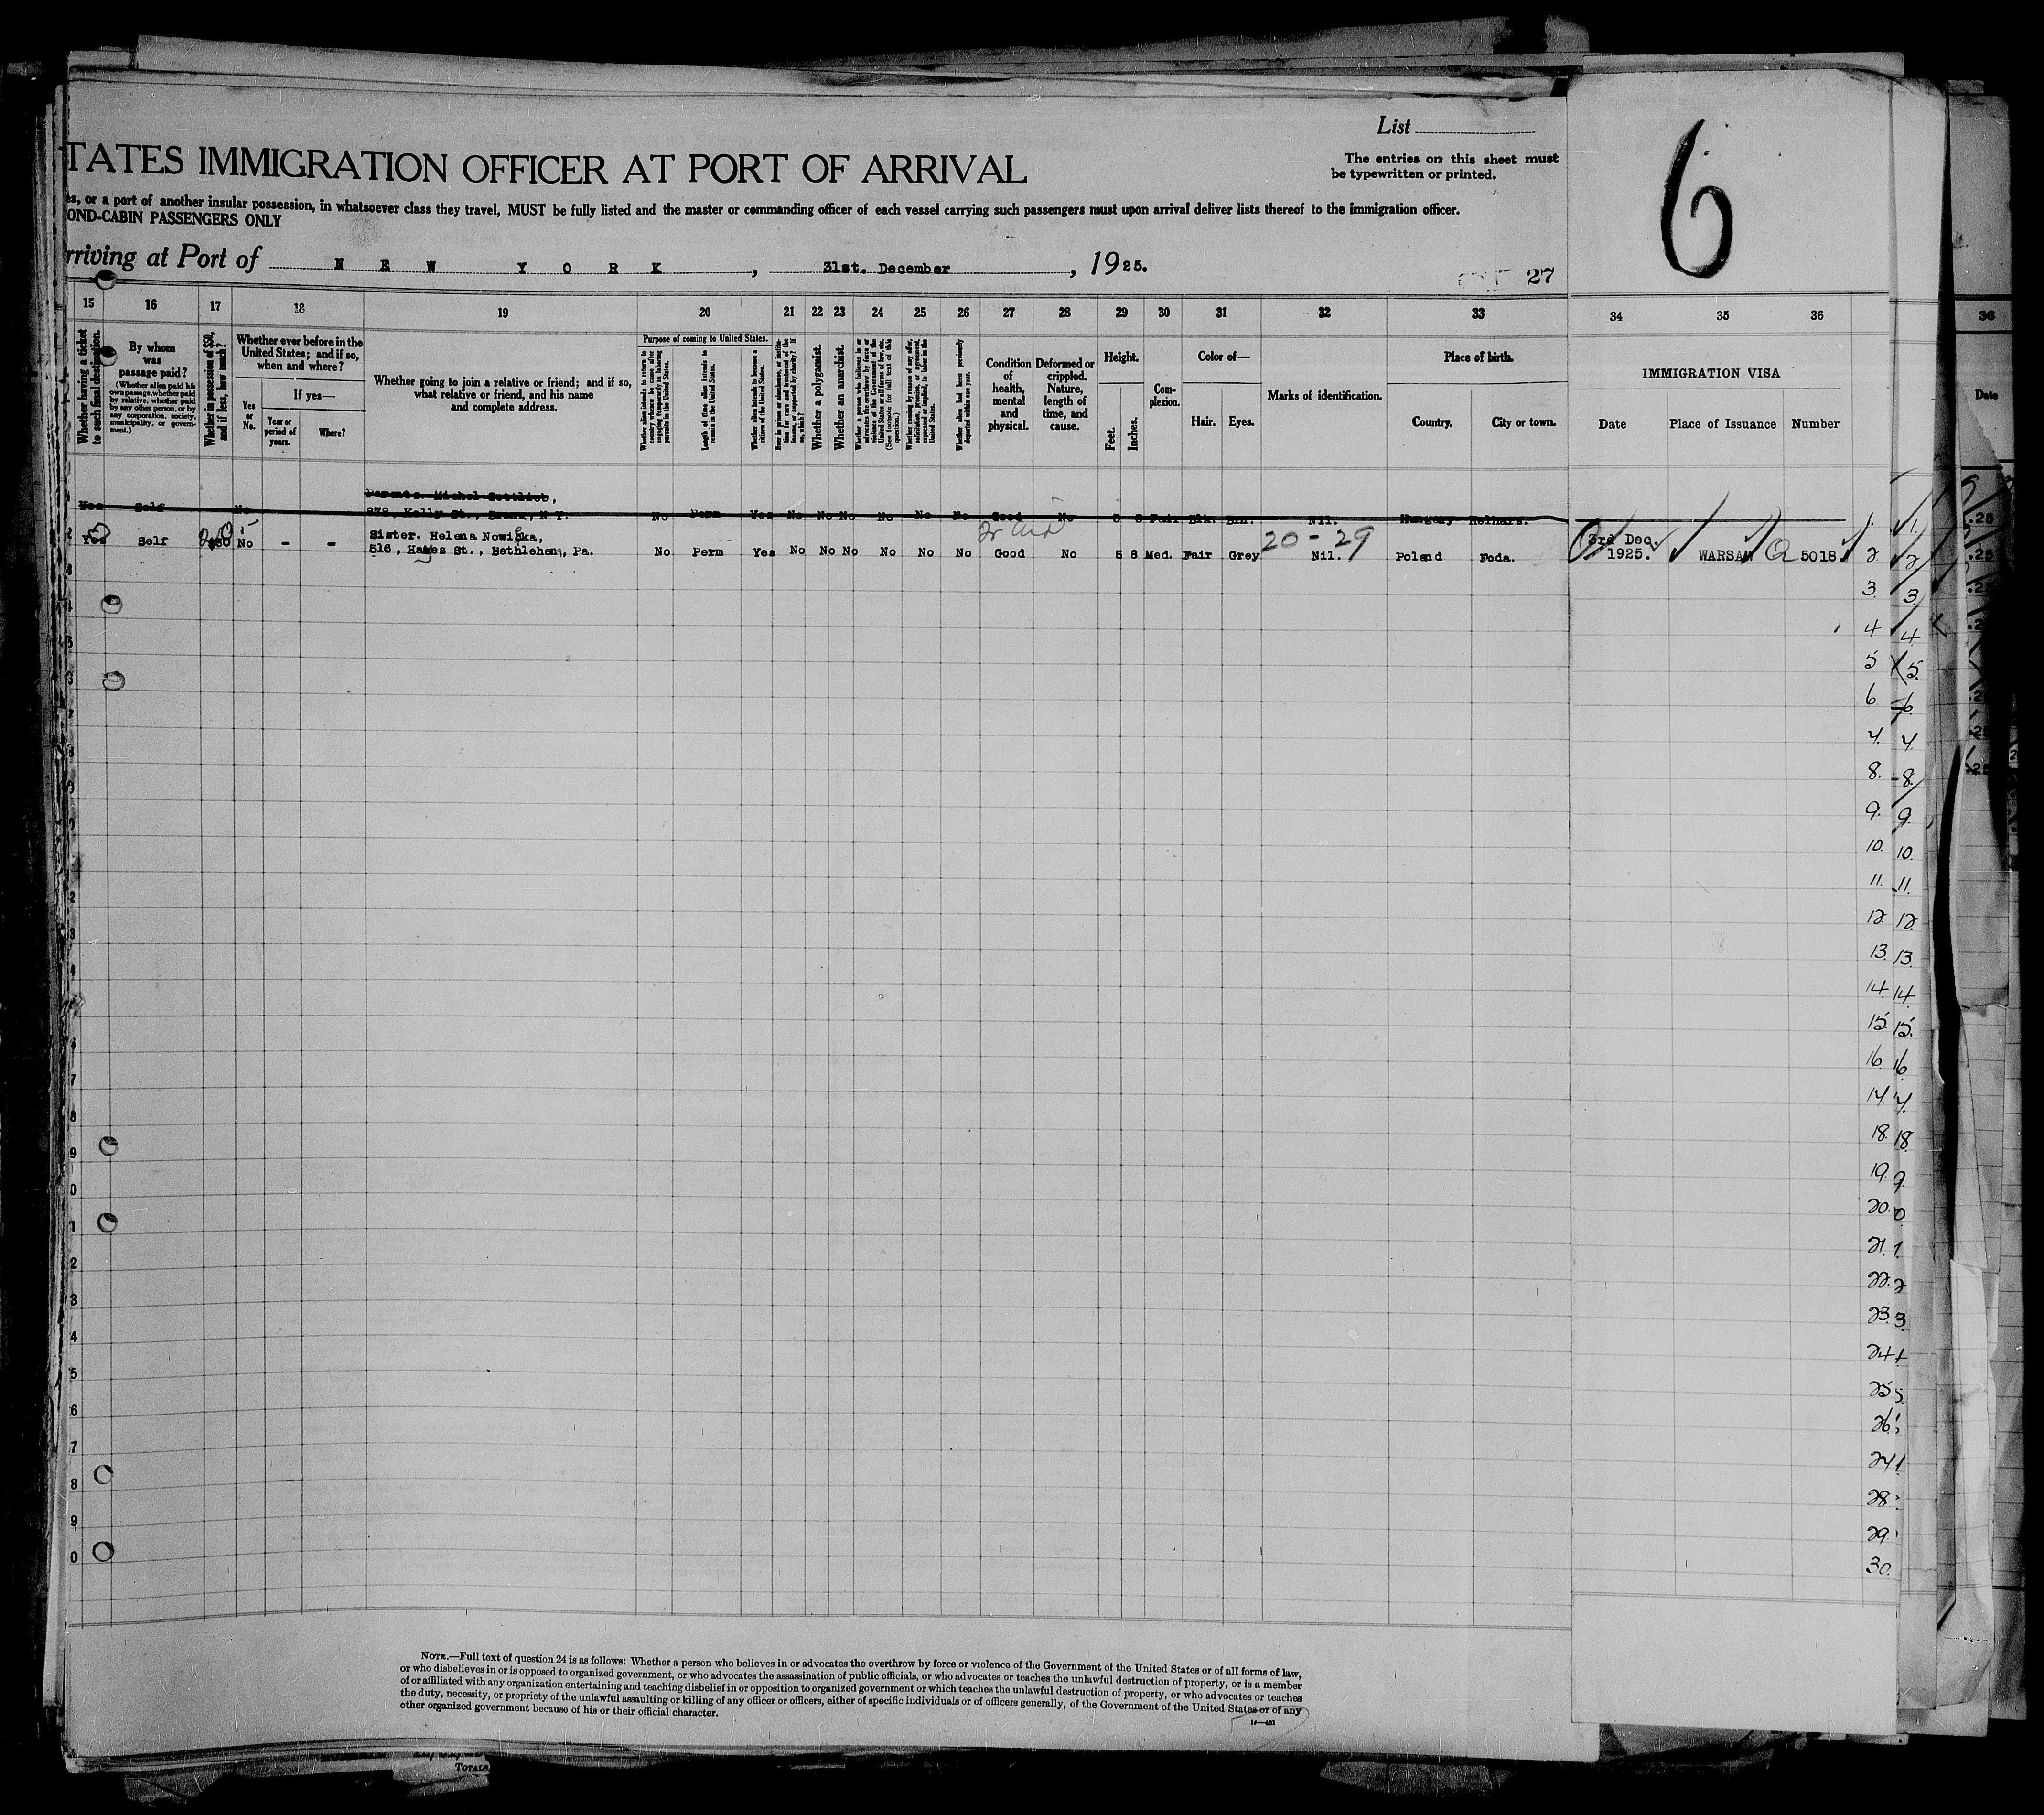 List
TATES IMMIGRATION OFFICER AT PORT OF ARRIVAL
The entries on this sheet must
be typewritten or printed.
6
es, or a port of another insular possession, in whatsoever class they travel, MUST be fully listed and the master or commanding officer of each vessel carrying such passengers must upon arrival deliver lists thereof to the immigration officer.
OND-CABIN PASSENGERS ONLY
rriving at Port of N E W Y O R K , 31st. December , 1925.
27
15 16 17 18 19 20 21 22 23 24 25 26 27 28 29 30 31 32 33 34 35 36
36
Whether having a ticket to such final destination.
By whom was passage paid?
(Whether alien paid his own passage, whether paid by relative, whether paid by any other person, or by any corporation, society, municipality, or government.)
Whether in possession of $50, and if less, how much?
Whether ever before in the United States; and if so, when and where?
Yes or No.
If yes—
Year or period of years.
Where?
Whether going to join a relative or friend; and if so, what relative or friend, and his name and complete address.
Purpose of coming to United States.
Whether alien intends to return to country whence he came after engaging temporarily in laboring pursuits in the United States.
Length of time alien intends to remain in the United States.
Whether alien intends to become a citizen of the United States.
Ever in prison or almshouse, or institution for care and treatment of the insane, or supported by charity? If so, which?
Whether a polygamist.
Whether an anarchist.
Whether a person who believes in or advocates the overthrow by force or violence of the Government of the United States or all forms of law, etc. (See footnote for full text of this question.)
Whether coming by reason of any offer, solicitation, promise, or agreement, expressed or implied, to labor in the United States.
Whether alien had been previously deported within one year.
Condition of health, mental and physical.
Deformed or crippled. Nature, length of time, and cause.
Height.
Feet.
Inches.
Complexion.
Color of—
Hair.
Eyes.
Marks of identification.
Place of birth.
Country.
City or town.
IMMIGRATION VISA
Date
Place of Issuance
Number
Date
Parents. Michel Gottlieb,
Yes Self No 878, Kelly St., Bronx, N.Y. No Perm Yes No No No No No No Good No 5 8 Fair Blk. Brn. Nil. Hungary
Sister. Helena Nowicka, 20-29 3rd Dec.
Yes Self $50 No - - 516, Hayes St., Bethlehem, Pa. No Perm Yes No No No No No No Good No 5 8 Med. Fair Grey Nil. Poland Foda. 1925. WARSAW Q 5018
1.
2. 2
3. 3
4 4
5 5.
6 6
7. 7
8. 8
9. 9.
10. 10.
11. 11.
12 12.
13. 13.
14 14
15. 15.
16 16
17 7.
18. 18
19 9
20. 0
21. 1
22. 2
23. 3
24
25 5
26
27
28
29
30.
NOTE.—Full text of question 24 is as follows: Whether a person who believes in or advocates the overthrow by force or violence of the Government of the United States or of all forms of law,
or who disbelieves in or is opposed to organized government, or who advocates the assassination of public officials, or who advocates or teaches the unlawful destruction of property, or is a member
of or affiliated with any organization entertaining and teaching disbelief in or opposition to organized government or which teaches the unlawful destruction of property, or who advocates or teaches
the duty, necessity, or propriety of the unlawful assaulting or killing of any officer or officers, either of specific individuals or of officers generally, of the Government of the United States or of any
other organized government because of his or their official character.
TOTALS